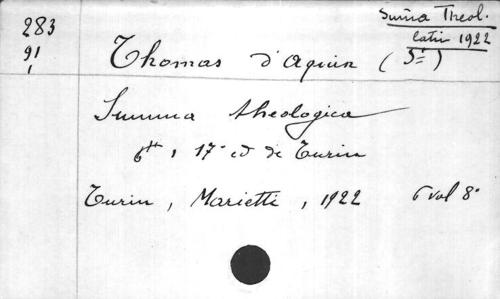 283
91
1
Suma Theol.
latin 1922
Thomas d'Aquin (St)
Summa theologica
6tt, 17e ed de Turin
Turin, Marietti, 1922 6 vol 8°